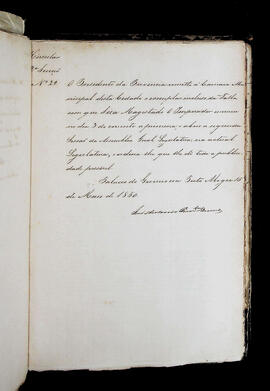 Circular
2ª Secção
Nº 20
O Presidente da Provincia remette á Camara Mu-
nicipal desta Cidade o exemplar incluso da Falla
com que Sua Magestade O Imperador
no dia 3 do corrente a primeira, abrio a segunda
Sessão da Assembléa Geral Legislativa, na actual
Legislatura, e ordena que lhe dê toda a publici-
dade possivel.
Palacio do Governo em Porto Alegre 18
de Maio de 1850